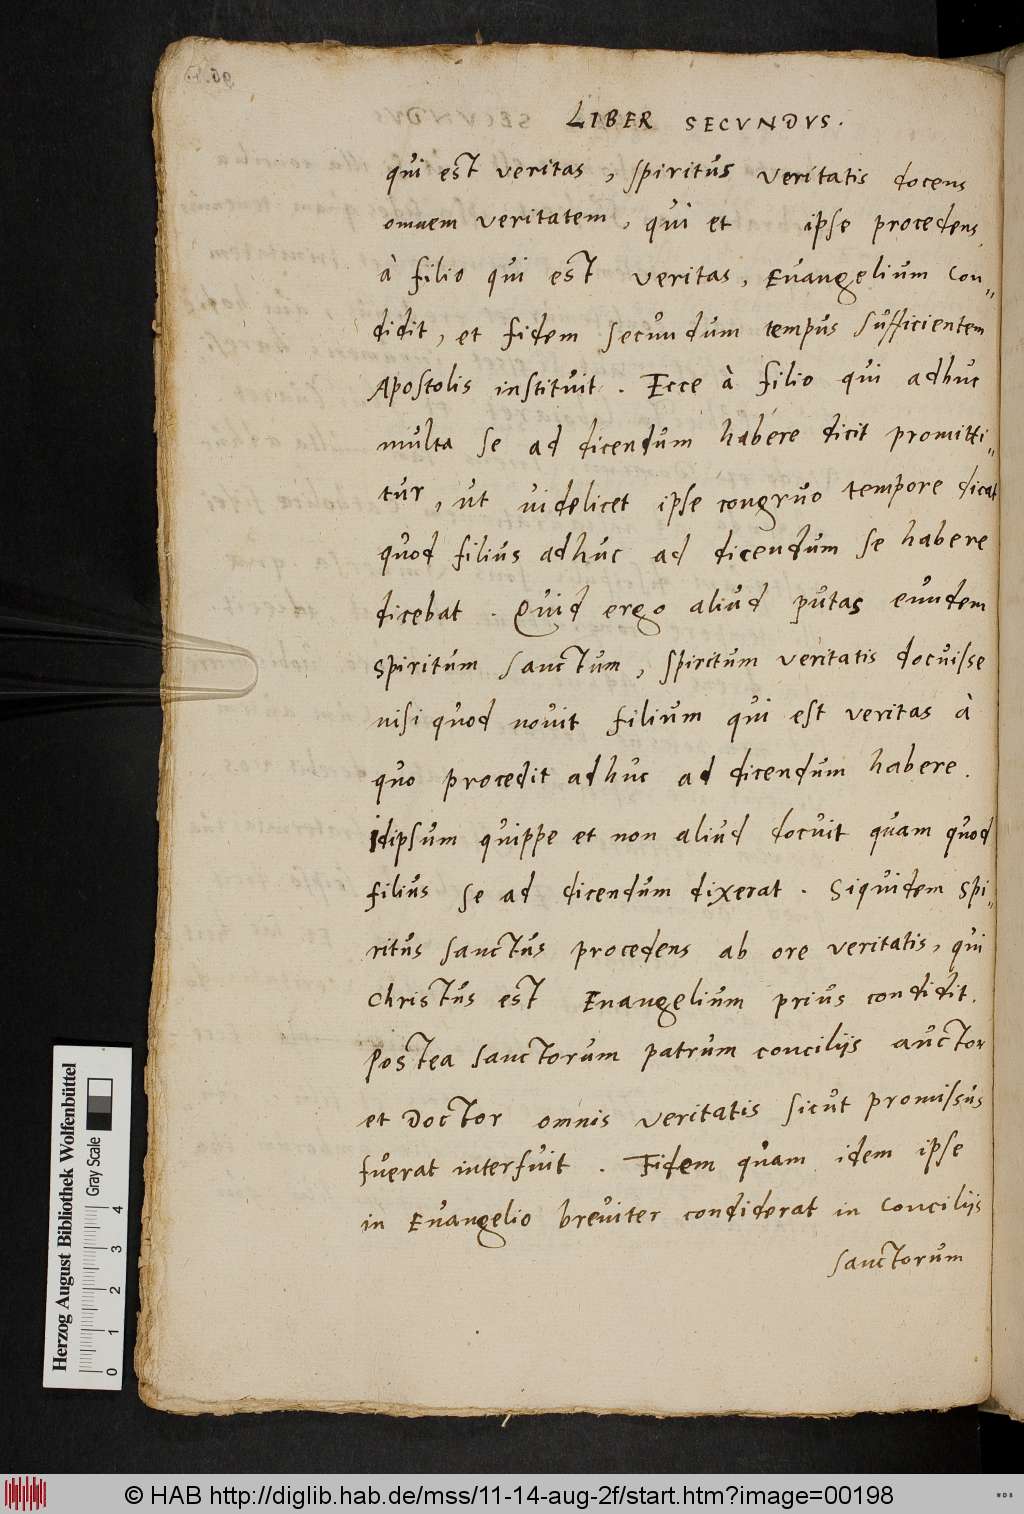 LIBER SECVNDVS.
qui est veritas, spiritus veritatis docens
omnem veritatem, qui et ipse procedens
à filio qui est veritas, Euangelium con„
didit, et fidem secundum tempus sufficientem
Apostolis instituit. Ecce à filio qui adhuc
multa se ad dicendum habere dicit promitti„
tur, ut uidelicet ipse congruo tempore dicat
quod filius adhuc ad dicendum se habere
dicebat. Quid ergo aliud putas eundem
spiritum sanctum, spiritum veritatis docuisse
nisi quod nouit filium qui est veritas à
quo procedit adhuc ad dicendum habere.
idipsum quippe et non aliud docuit quam quod
filius se ad dicendum dixerat. Siquidem spi„
ritus sanctus procedens ab ore veritatis, qui
Christus est Enangelium prius condidit.
Postea sanctorum patrum concilijs auctor
et Doctor omnis veritatis sicut promissus
fuerat interfuit. Fidem quam idem ipse
in Euangelio breuiter condiderat in Concilijs
sanctorum
Herzog August Bibliothek Wolfenbüttel
Gray Scale
0 1 2 3 4
© HAB http://diglib.hab.de/mss/11-14-aug-2f/start.htm?image=00198